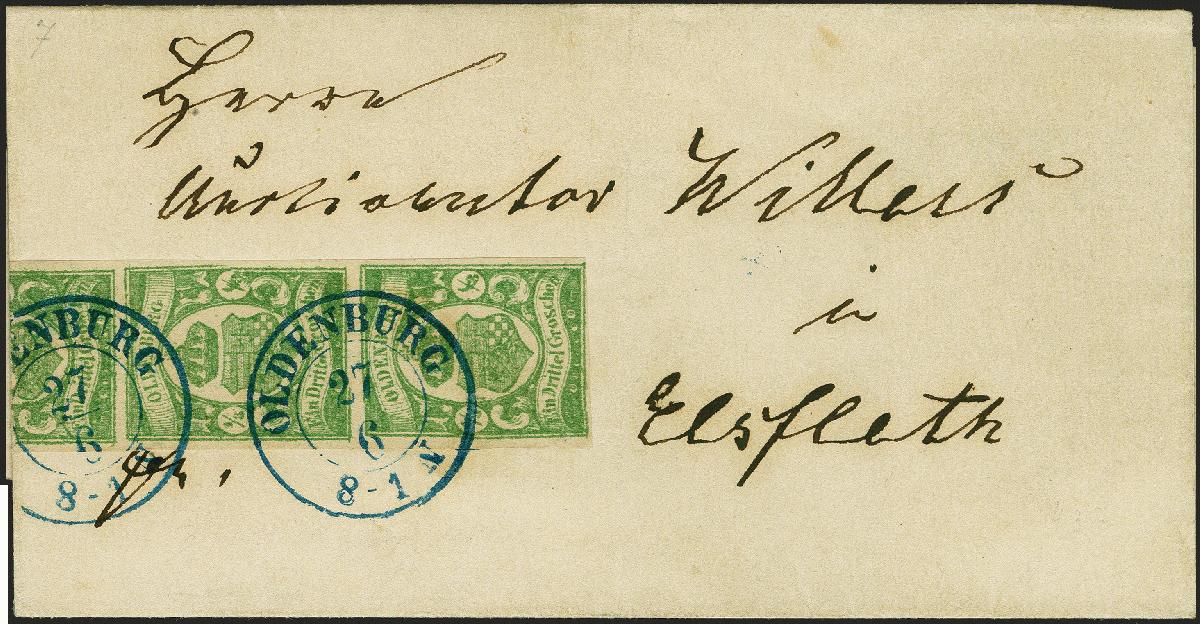 7
Herrn
Auctionator Willers
in
Elsfleth
fr.
OLDENBURG
27
6
8-1 N
OLDENBURG
27
6
8-1
Ein Drittel Groschen
OLDENBURG
1/3